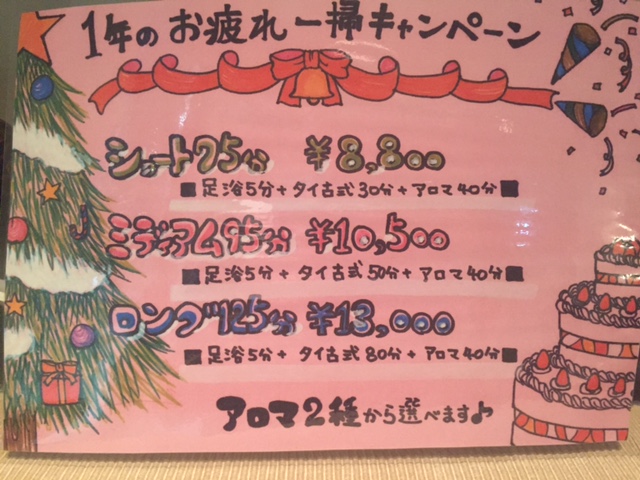 1年のお疲れ一掃キャンペーン
ショート75分 ¥8,800
■足浴5分+タイ古式30分+アロマ40分■
ミディアム95分 ¥10,500
■足浴5分+タイ古式50分+アロマ40分■
ロング125分 ¥13,000
■足浴5分+タイ古式80分+アロマ40分■
アロマ2種から選べます♪